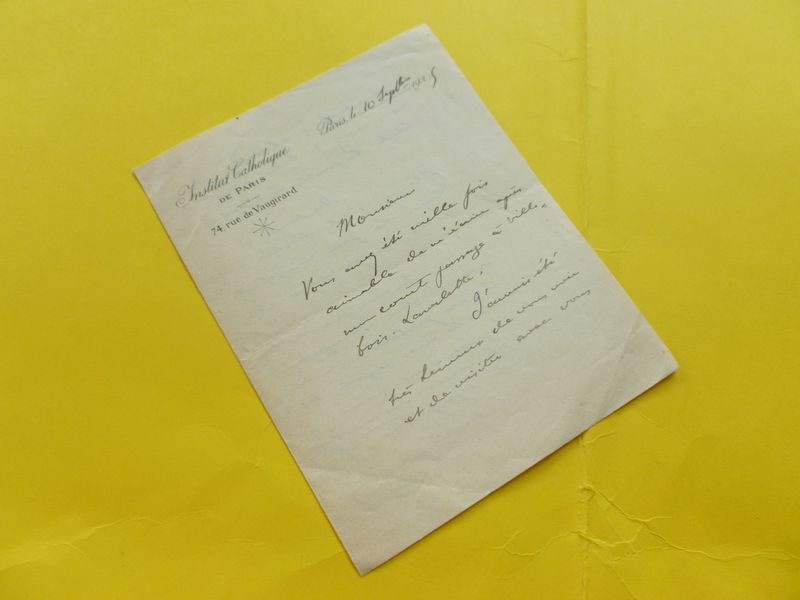 Institut Catholique
DE PARIS
74 rue de Vaugirard
Paris, le 10 Septbre 1925
Monsieur
Vous avez été mille fois
aimable de m'écrire après
mon court passage à Ville-
bois-Lavalette.
J'aurais été
très heureux de vous voir
et de visiter avec vous